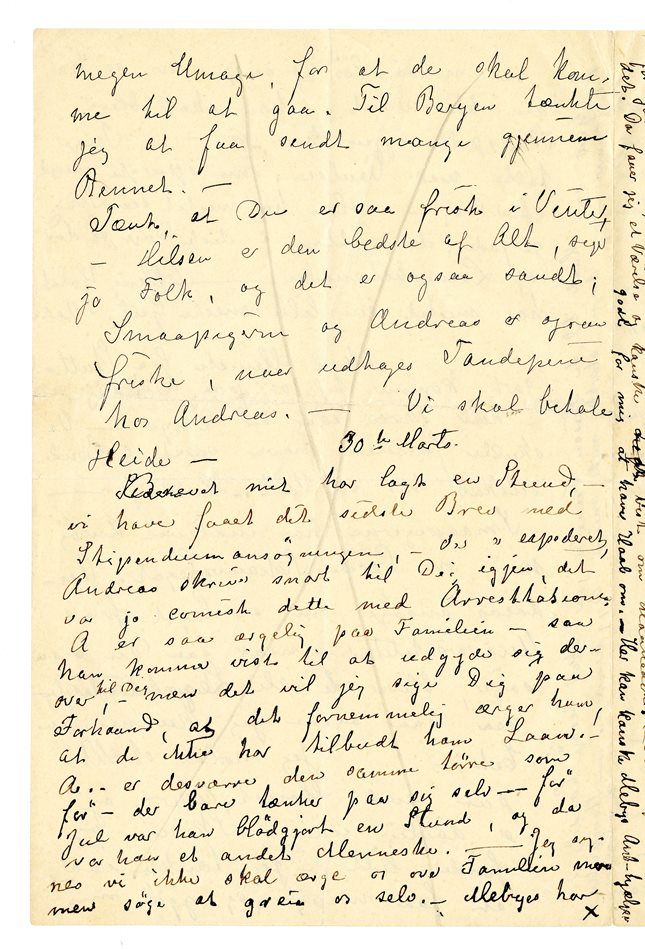 megen Umage, for at de skal kom-
me til at gaa. Til Bergen tænkte
jeg at faa sendt mange gjennem
Bennet. —
Tænk, at Du er saa frisk i Vinter,
— Hilsen er den bedste af Alt, siger
jo Folk, og det er ogsaa sandt;
Smaapigerne og Andreas er ogsaa
friske, naar undtages Tandpine
hos Andreas. — Vi skal betale
Heide —
30te Marts.
Brevet mit har lagt en Stund, —
vi have faaet dit sidste Brev med
Stipendiumansøgningen, — den er expederet,
Andreas skriver snart til Dig igjen, det
var jo comisk dette med Arrestationen.
A er saa ærgelig paa Familien — saa
han kommer vist til at udgyde sig der-
over til Dig, — men det vil jeg sige Dig paa
Forhaand, at det fornemmelig ærger ham,
at de ikke har tilbudt ham Laan. —
A. — er desværre den samme tørre som
før — der bare tænker paa sig selv — før
Jul var han blødgjort en Stund, og da
var han et andet Menneske. — Jeg sy-
nes vi ikke skal ærge os over Familien
men søge at greie os selv. — Mebyes har
x
det. Da faaer jeg et Værelse og kanske
godt for mig at have Haab om. — Her kan kanske Mebyes